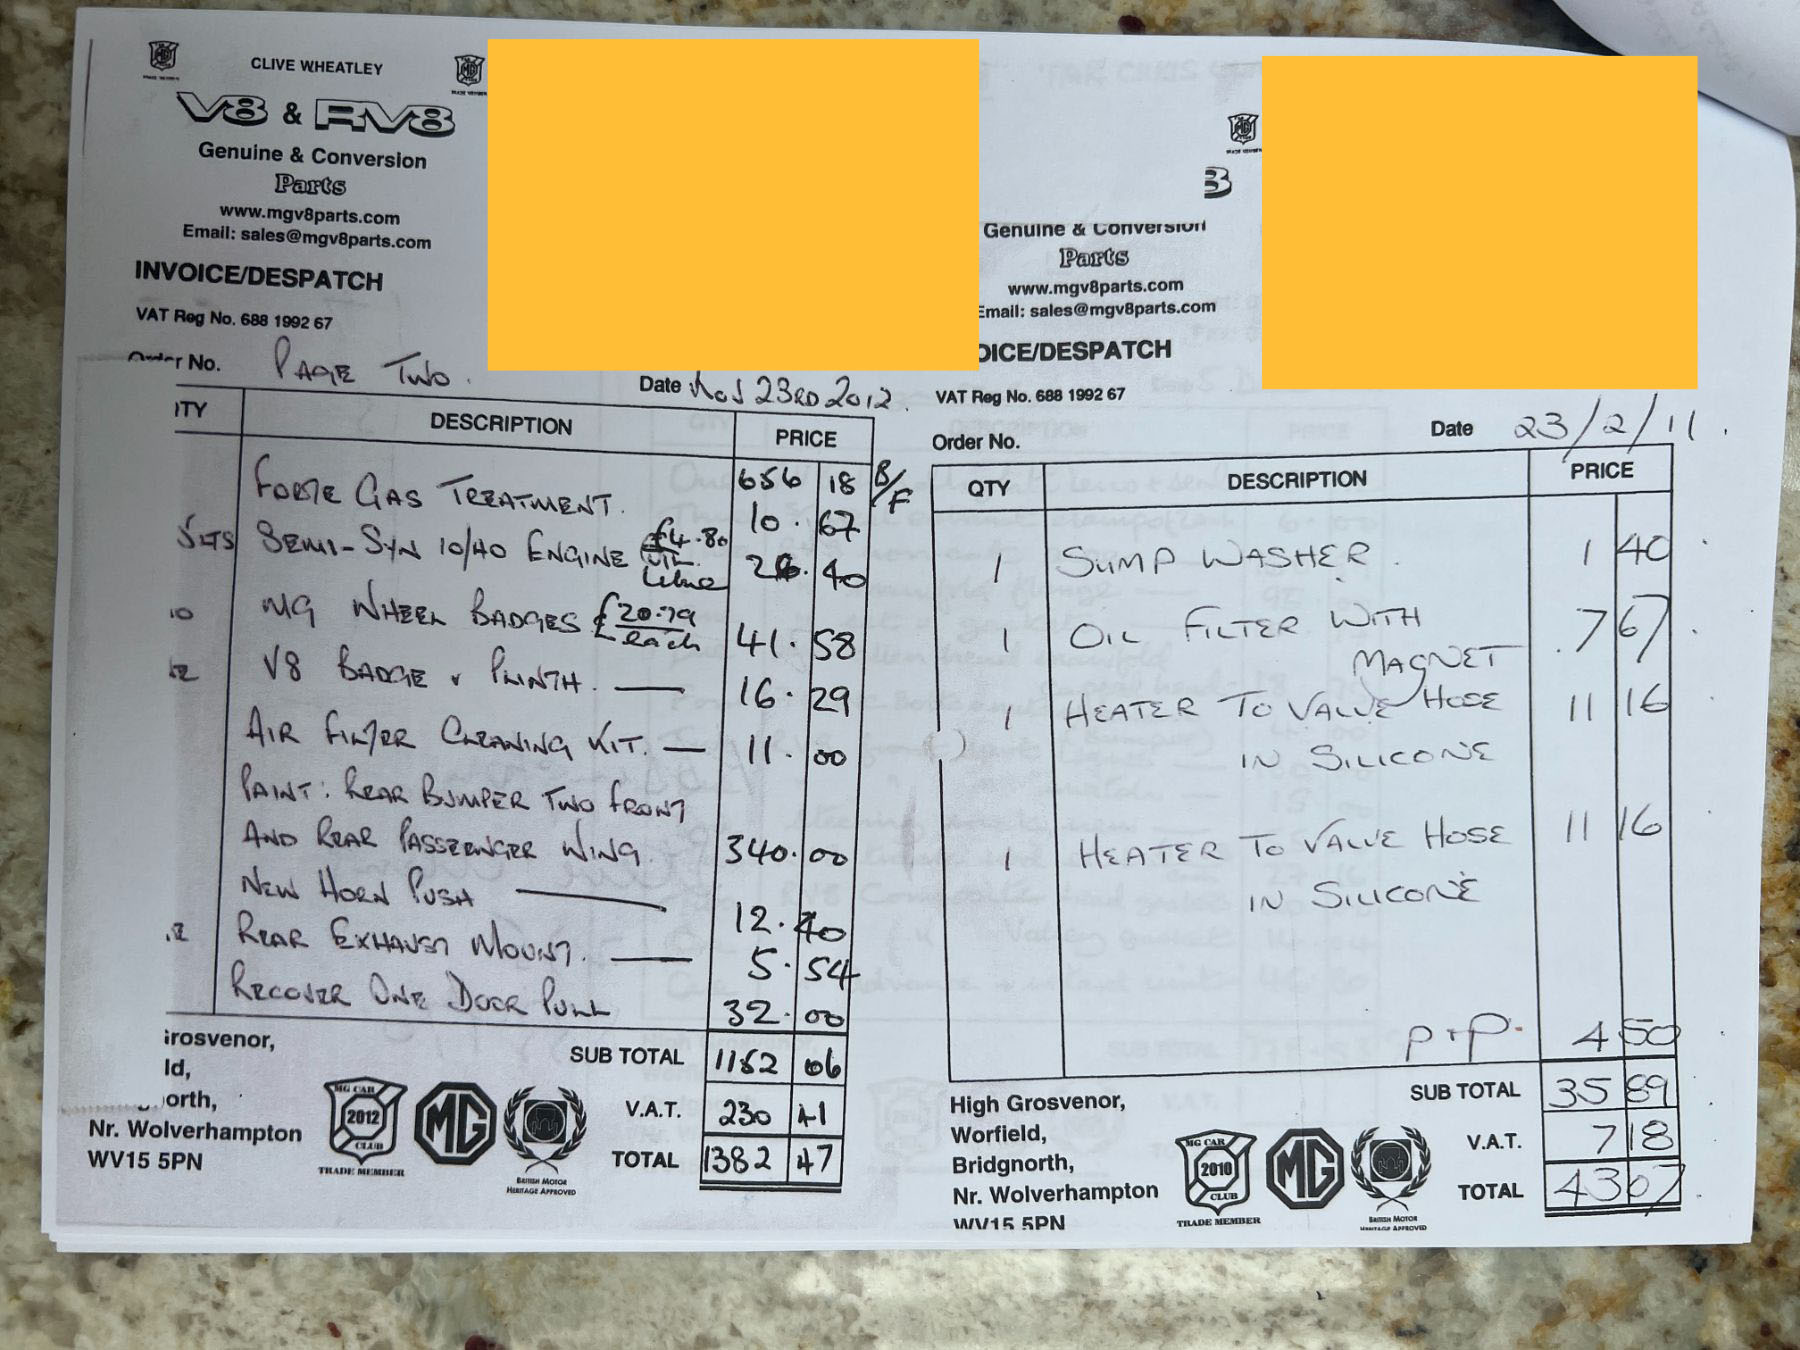 CLIVE WHEATLEY
V8 & RV8
Genuine & Conversion
Parts
www.mgv8parts.com
Email: sales@mgv8parts.com
INVOICE/DESPATCH
VAT Reg No. 688 1992 67
Order No. PAGE TWO.
Date Nov 23RD 2012.
ITY DESCRIPTION PRICE
656 18 B/F
FORTE GAS TREATMENT. 10.67
5LTS SEMI-SYN 10/40 ENGINE OIL £4.80 Litre 24.40
MG WHEEL BADGES £20.79 each 41.58
V8 BADGE & PLINTH. — 16.29
AIR FILTER CLEANING KIT. — 11.00
PAINT: REAR BUMPER TWO FRONT
AND REAR PASSENGER WING. 340.00
NEW HORN PUSH — 12.40
REAR EXHAUST MOUNT. — 5.54
RECOVER ONE DOOR PULL 32.00
SUB TOTAL 1152 06
V.A.T. 230 41
TOTAL 1382 47
Grosvenor,
ld,
orth,
Nr. Wolverhampton
WV15 5PN
MG CAR
2012
CLUB
TRADE MEMBER
MG
BRITISH MOTOR
HERITAGE APPROVED
8
Genuine & Conversion
Parts
www.mgv8parts.com
Email: sales@mgv8parts.com
OICE/DESPATCH
VAT Reg No. 688 1992 67
Order No.
Date 23/2/11
QTY DESCRIPTION PRICE
1 SUMP WASHER. 1 40
1 OIL FILTER WITH 7 67
MAGNET
1 HEATER TO VALVE HOSE 11 16
IN SILICONE
1 HEATER TO VALVE HOSE 11 16
IN SILICONE
P+P. 4 50
SUB TOTAL 35 89
V.A.T. 7 18
TOTAL 43 07
High Grosvenor,
Worfield,
Bridgnorth,
Nr. Wolverhampton
WV15 5PN
MG CAR
2010
CLUB
TRADE MEMBER
MG
BRITISH MOTOR
HERITAGE APPROVED